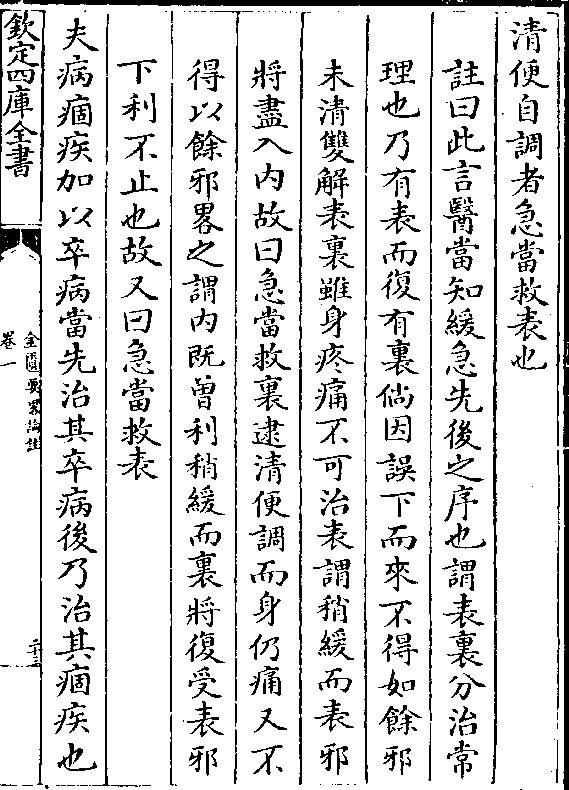 清便自調者急當救表也
註曰此言醫當知緩急先後之序也謂表裏分治常
理也乃有表而復有裏倘因誤下而來不得如餘邪
未清雙解表裏雖身疼痛不可治表謂稍緩而表邪
將盡入内故曰急當救裏逮清便調而身仍痛又不
得以餘邪畧之謂内既曾利稍緩而裏將復受表邪
下利不止也故又曰急當救表
夫病痼疾加以卒病當先治其卒病後乃治其痼疾也
欽定四庫全書
金匱要畧論註
卷一
二十三